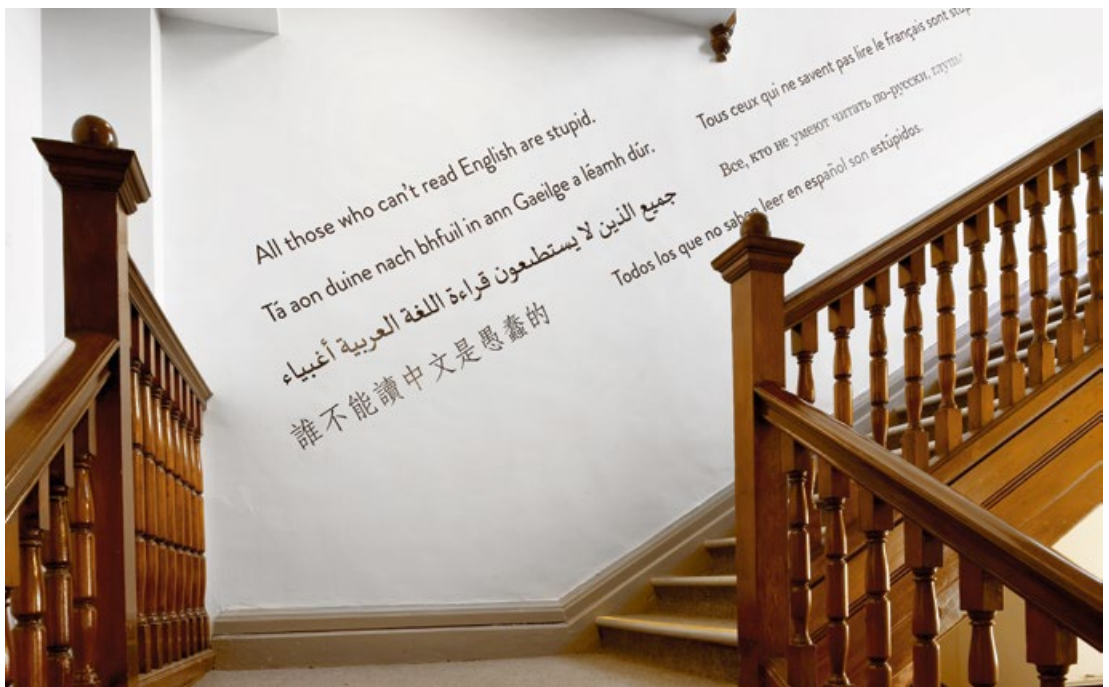 All those who can't read English are stupid.
Tá aon duine nach bhfuil in ann Gaeilge a léamh dúr.
جميع الذين لا يستطيعون قراءة اللغة العربية أغبياء
誰不能讀中文是愚蠢的
Tous ceux qui ne savent pas lire le français sont
Все, кто не умеют читать по-русски,
Todos los que no saben leer en español son estúpidos.